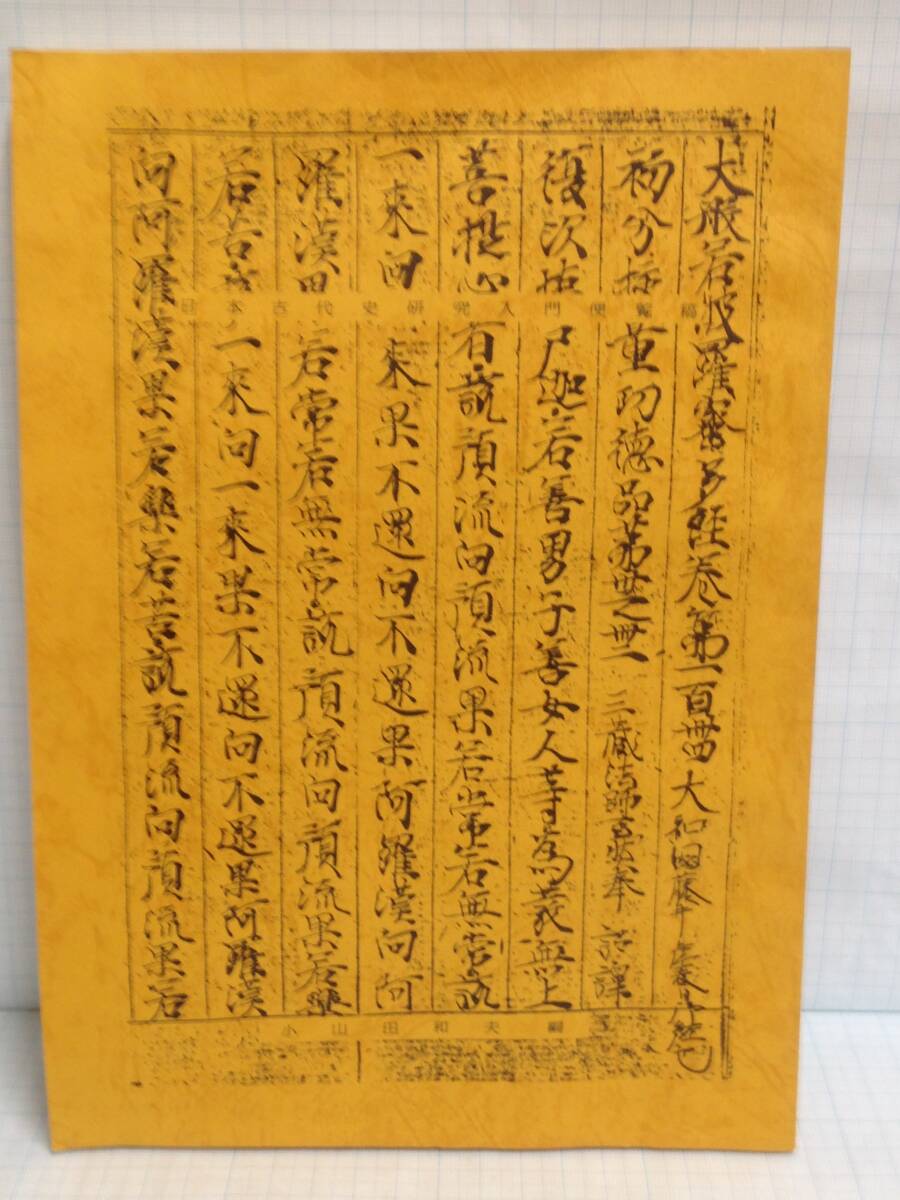 大般若波羅蜜多経巻第一百 大和国
初分挍量功徳品第卅之卌一 三蔵法師玄奘奉 詔譯
復次憍尸迦若善男子善女人等為發無上
菩提心者說預流向預流果若常若無常說
一來向一來果不還向不還果阿羅漢向阿
羅漢果若常若無常說預流向預流果若樂
若苦說一來向一來果不還向不還果阿羅漢
向阿羅漢果若樂若苦說預流向預流果若
日本古代史研究入門便覧稿
小山田和夫編